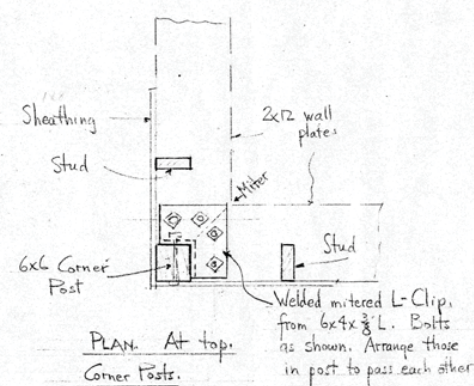 Sheathing
2x12 wall
plates
Stud
Miter
Stud
6x6 Corner
Post
Welded mitered L-Clip,
from 6x4x3/8 L. Bolts
as shown. Arrange those
in post to pass each other
PLAN. At top.
Corner Posts.